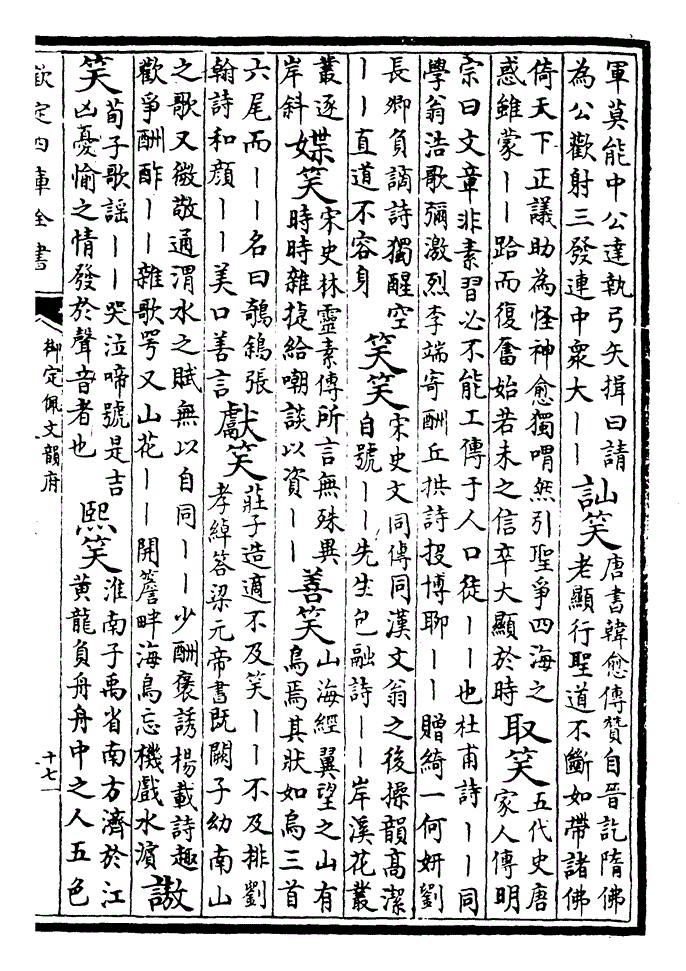 軍莫能中公達執弓矢揖曰請
為公歡射三發連中衆大丨丨
訕笑
唐書韓愈傳贊自晉訖隋佛
老顯行聖道不斷如帶諸佛
倚天下正議助為怪神愈獨喟然引聖爭四海之
惑雖蒙丨丨跲而復奮始若未之信卒大顯於時
取笑
五代史唐
家人傳明
宗曰文章非素習必不能工傳于人口徒丨丨也杜甫詩丨丨同
學翁浩歌彌激烈李端寄酬丘拱詩投博聊丨丨贈綺一何妍劉
長卿負謫詩獨醒空
丨丨直道不容身
笑笑
宋史文同傳同漢文翁之後操韻高潔
自號丨丨先生包融詩丨丨岸溪花叢
叢逐
岸斜
媟笑
宋史林靈素傳所言無殊異
時時雜捷給嘲談以資丨丨
善笑
山海經翼望之山有
烏焉其狀如烏三首
六尾而丨丨名曰鵸鵌張
翰詩和顔丨丨美口善言
獻笑
莊子造適不及笑丨丨不及排劉
孝綽答梁元帝書既闕子幼南山
之歌又微敬通渭水之賦無以自同丨丨少酬褒誘楊載詩趣
歡爭酬酢丨丨雜歌咢又山花丨丨開簷畔海鳥忘機戲水濵
謸
笑
荀子歌謡丨丨哭泣啼號是吉
凶憂愉之情發於聲音者也
熙笑
淮南子禹省南方濟於江
黄龍負舟舟中之人五色
欽定四庫全書
御定佩文韻府
十七